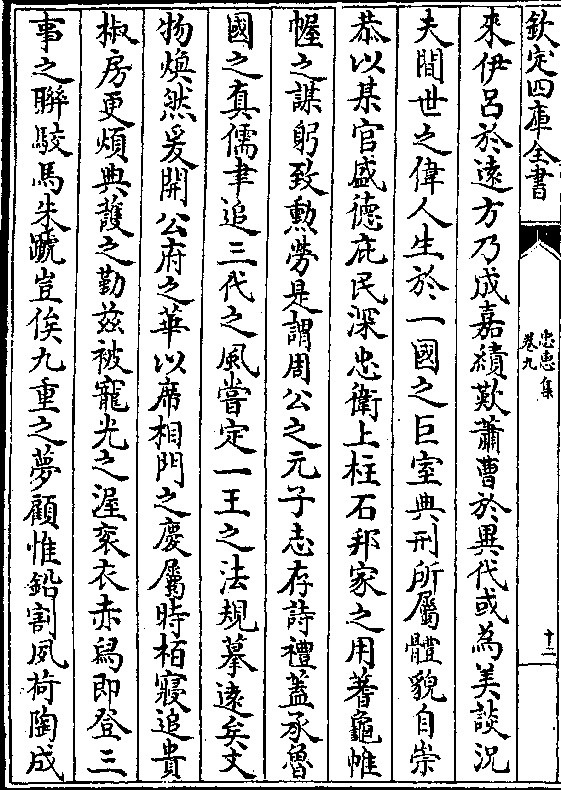 欽定四庫全書
忠惠集
卷九
十二
來伊呂於遠方乃成嘉績歎蕭曹於異代或為美談況
夫間世之偉人生於一國之巨室典刑所屬體貌自崇
恭以某官盛德庇民深忠衛上柱石邦家之用蓍龜帷
幄之謀躬致勲勞是謂周公之元子志存詩禮蓋承魯
國之真儒聿追三代之風嘗定一王之法規摹遠矣文
物煥然爰開公府之華以席相門之慶屬時栢寢追貴
椒房更煩典護之勤兹被寵光之渥衮衣赤舄即登三
事之聯駮馬朱𧇾豈俟九重之夢顧惟鉛割夙荷陶成